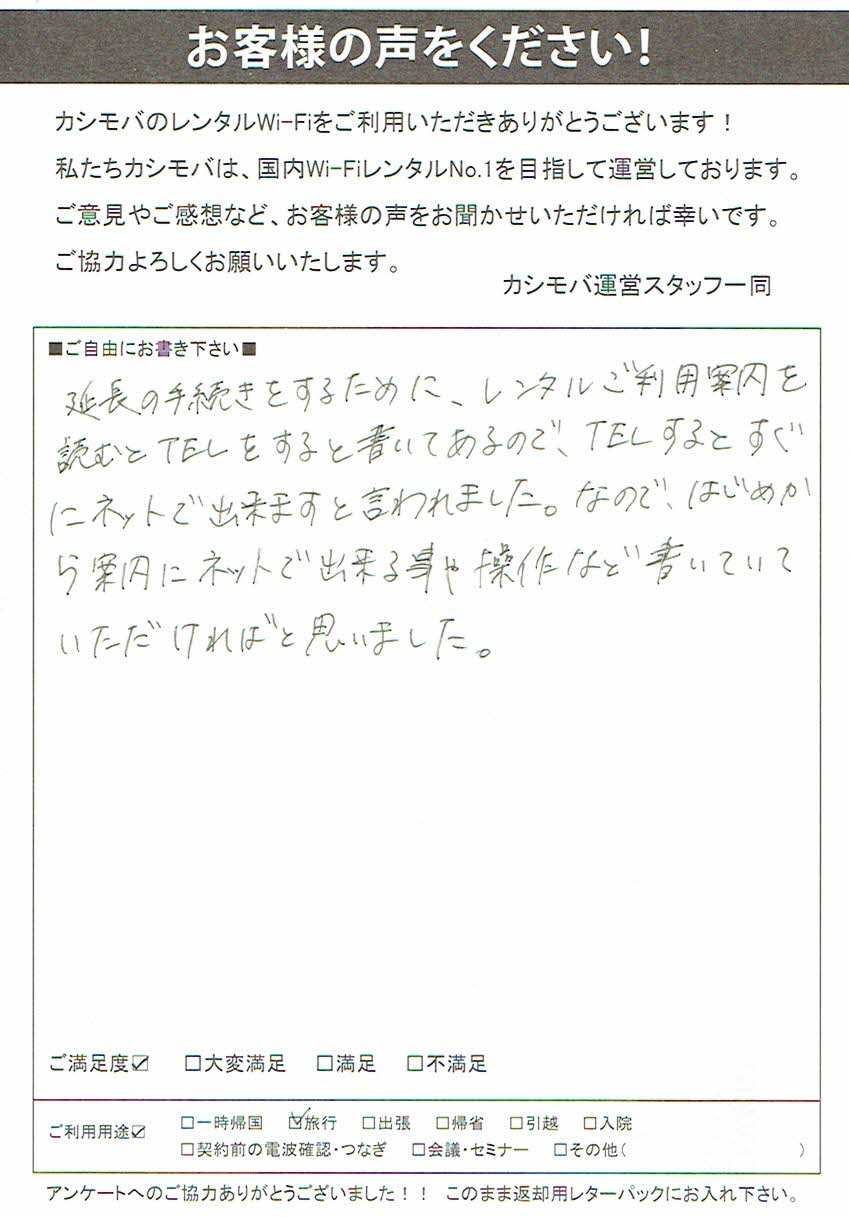 お客様の声をください!
カシモバのレンタルWi-Fiをご利用いただきありがとうございます！
私たちカシモバは、国内Wi-FiレンタルNo.1を目指して運営しております。
ご意見やご感想など、お客様の声をお聞かせいただければ幸いです。
ご協力よろしくお願いいたします。
カシモバ運営スタッフ一同
■ご自由にお書き下さい■
延長の手続きをするために、レンタルご利用案内を
読むとTELをすると書いてあるので、TELするとすぐ
にネットで出来ますと言われました。なので、はじめか
ら案内にネットで出来る事や操作など書いていて
いただければと思いました。
ご満足度☑ □大変満足 □満足 □不満足
ご利用用途☑ □一時帰国 ☑旅行 □出張 □帰省 □引越 □入院
□契約前の電波確認・つなぎ □会議・セミナー □その他( )
アンケートへのご協力ありがとうございました！！ このまま返却用レターパックにお入れ下さい。